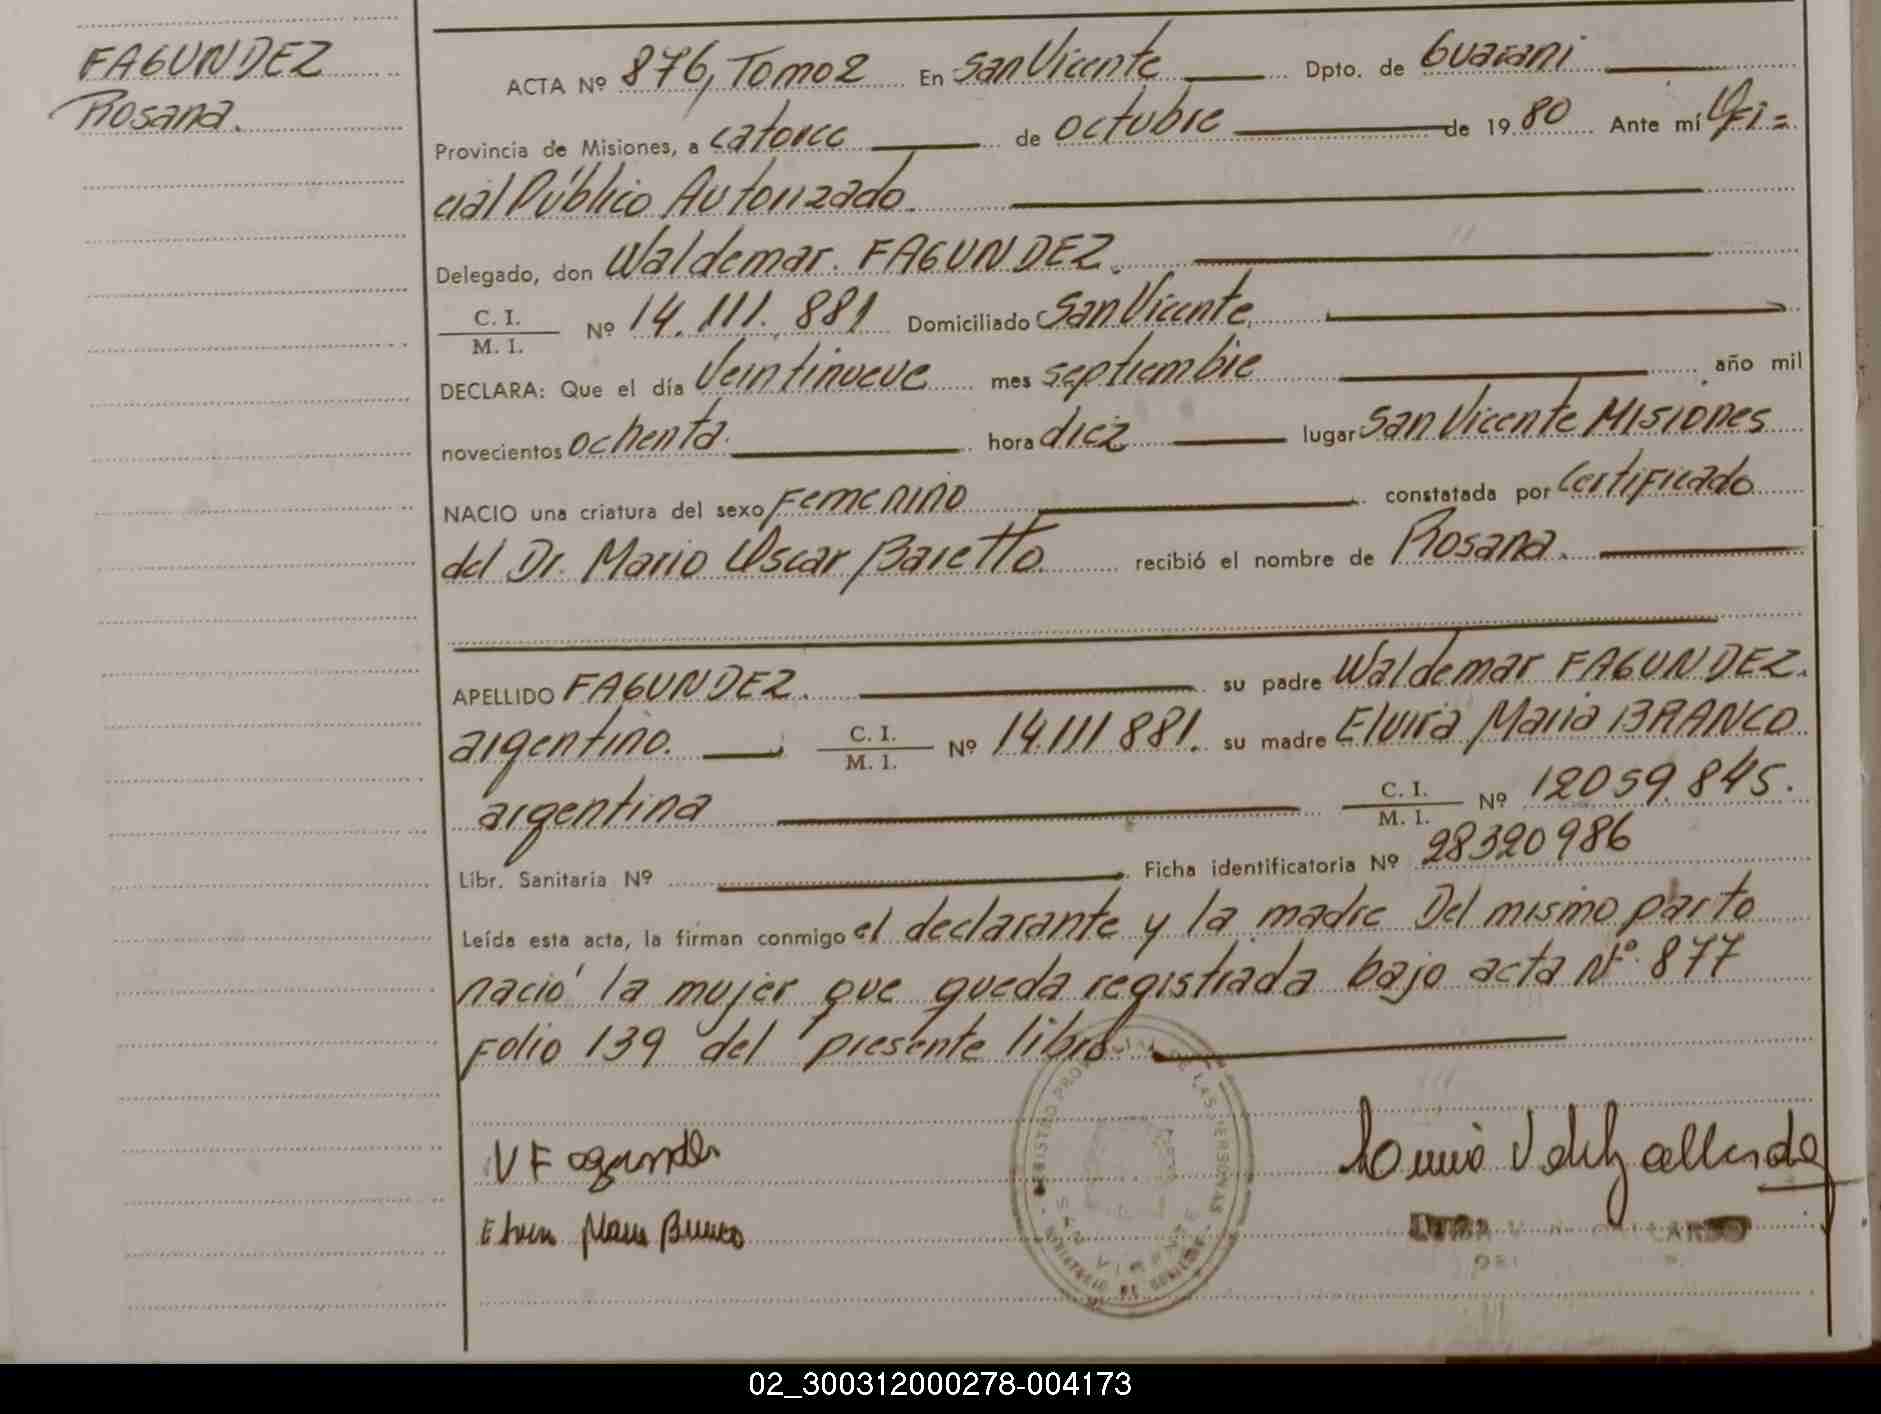 FAGUNDEZ
Rosana.
ACTA Nº 876, Tomo 2 En San Vicente Dpto. de Guarani
Provincia de Misiones, a catorce de octubre de 1980 Ante mí Ofi=
cial Público Autorizado.
Delegado, don Waldemar. FAGUNDEZ.
C. I.
M. I. Nº 14.111.881 Domiciliado San Vicente
DECLARA: Que el día Veintinueve mes septiembre año mil
novecientos ochenta. hora diez lugar San Vicente Misiones
NACIO una criatura del sexo Femenino constatada por Certificado
del Dr. Mario Oscar Baretto. recibió el nombre de Rosana.
APELLIDO FAGUNDEZ. su padre Waldemar FAGUNDEZ.
argentino. C. I.
M. I. Nº 14.111.881. su madre Elvira Maria BRANCO
argentina C. I.
M. I. Nº 12059.845.
Libr. Sanitaria Nº Ficha identificatoria Nº 28320986
Leída esta acta, la firman conmigo el declarante y la madre Del mismo parto
nació la mujer que queda registrada bajo acta Nº 877
Folio 139 del presente libro.
REGISTRO PROVINCIAL DE LAS PERSONAS
SAN VICENTE
MINISTERIO DE GOBIERNO
V Fagundez
Elvira Maria Branco
02_300312000278-004173